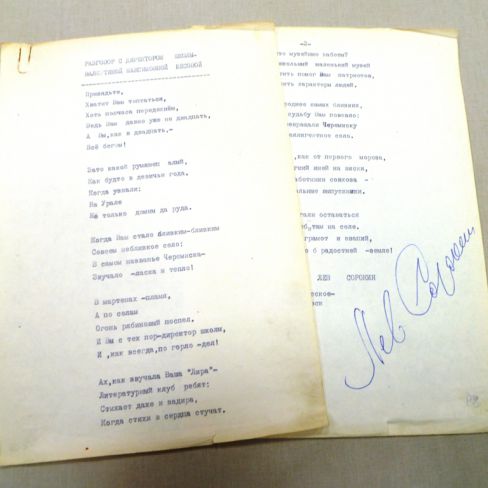 РАЗГОВОР С ДИРЕКТОРОМ ШКОЛЫ-
ВАЛЕНТИНОЙ МАКСИМОВНОЙ
Присядьте,
Хватит Вам топтаться,
Хоть полчаса передохнём,
Ведь Вам давно уже не двадцать,
А Вы, как в двадцать,-
Всё бегом!
Зато какой румянец алый,
Как будто в девичьи года.
Когда узнали:
На Урале
Не только домны да руда.
Когда Вам стало близким-близким
Совсем неблизкое село;
В самом названье Черемиска-
Звучало -ласка и тепло!
В мартенах -пламя,
А по селам
Огонь рябиновый поспел.
И Вы с тех пор-директор школы,
И ,как всегда,по горло -дел!
Ах,как звучала Ваша "Лира"-
Литературный клуб ребят;
Стихает даже и задира,
Когда стихи в сердца стучат.
-2-
музейные заботы?
маленький музей
помог Вам патриотов,
характеры людей.
самых близких,
судьбу Вам повело:
Черемиску
село.
,как от первого мороза,
иней на виски,
совхоза -
выпускники.
остаться
на селе.
и знаний,
о радостной -земле!
ЛЕВ СОРОКИН
Лев Сорокин